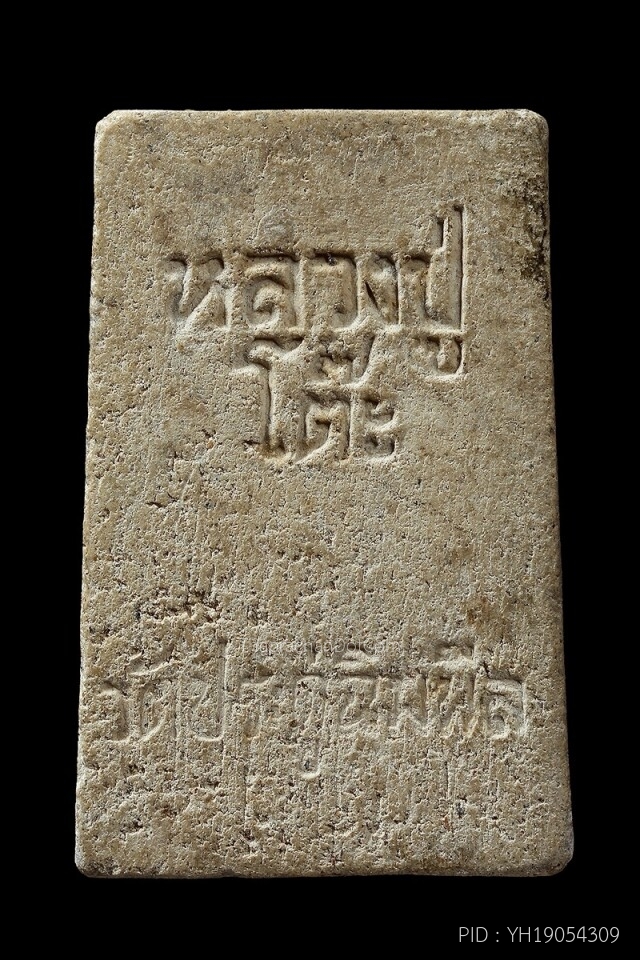 หลวงปู่
โต๊ะ
วัดประดู่ฉิมพลี
PID : YH19054309